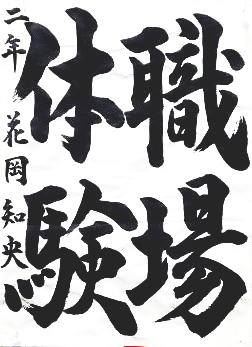 職場
体験
二年 花岡知央